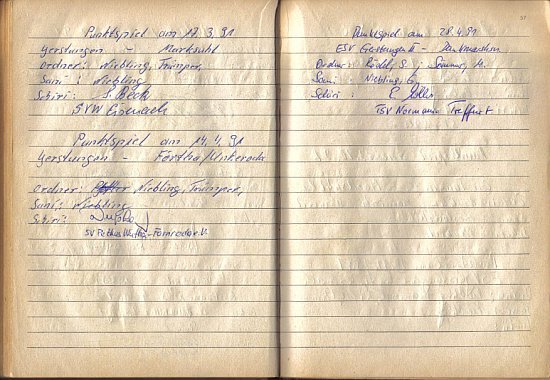 Punktspiel am 17.3.91
Gerstungen - Marksuhl
Ordner: Niebling, Trümper,
Sani: Niebling
Schiri: S. Beck
SVW Eisenach
Punktspiel am 14.4.91
Gerstungen - Förtha/Unkeroda
Ordner: Niebling, Trümper,
Sani: Niebling
Schiri:
SV Petkus Wutha-Farnroda e.V.
37
Punktspiel am 28.4.91
ESV Gerstungen II -
Ordner: Rödel, S; Sommer, H.
Sani: Niebling, G
Schiri: E.
TSV Normannia Treffurt